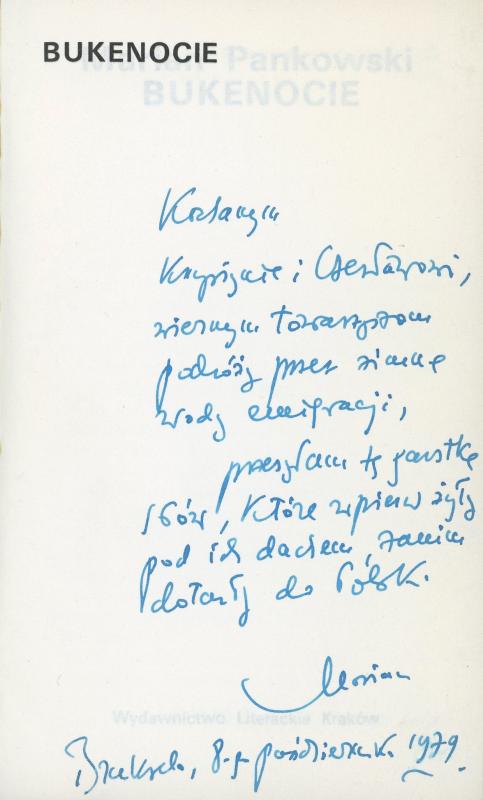 BUKENOCIE
Marian Pankowski
BUKENOCIE
Kochanym
Krystynie i Czesławowi,
wiernym towarzyszom
podróży przez zimne
wody emigracji,
przesyłam tę garstkę
słów, które wpierw żyły
pod ich dachem, zanim
dotarły do Polski.
Marian
Wydawnictwo Literackie Kraków
Bruksela, 8-go październik. 1979